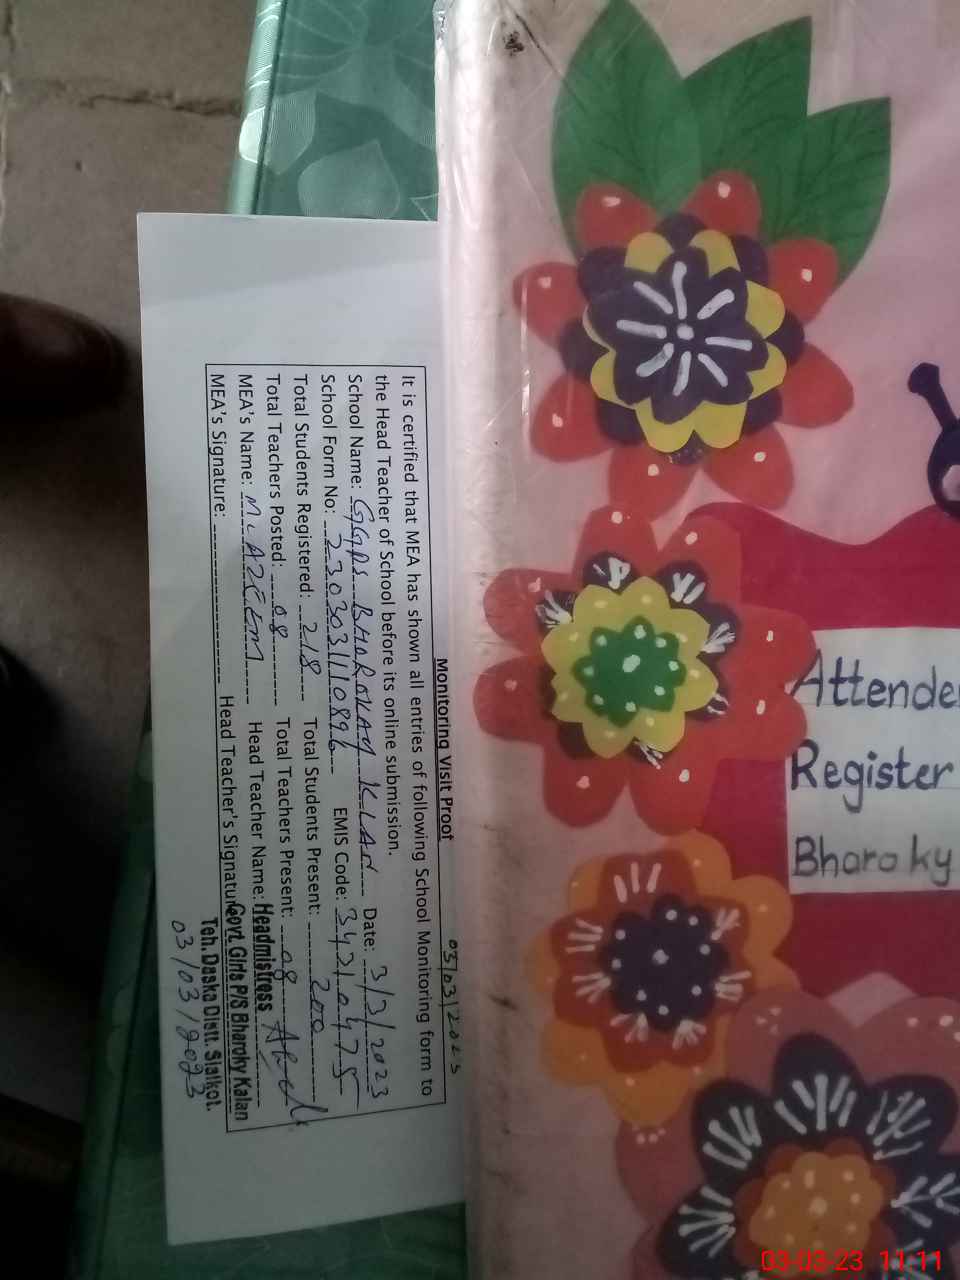 Monitoring Visit Proof 03/03/2023
It is certified that MEA has shown all entries of following School Monitoring form to
the Head Teacher of School before its online submission.
School Name: GGPS BHAROKAY KLAN Date: 3/3/2023
School Form No: 2303031110896 EMIS Code: 34210475
Total Students Registered: 218 Total Students Present: 200
Total Teachers Posted: 08 Total Teachers Present: 08
MEA's Name: M. AZEEM Head Teacher Name: Headmistress
MEA's Signature: Head Teacher's Signature Govt. Girls P/S Bharoky Kalan
Teh. Daska Distt. Sialkot.
03/03/2023
Attende
Register
Bharoky
03-03-23 11:11